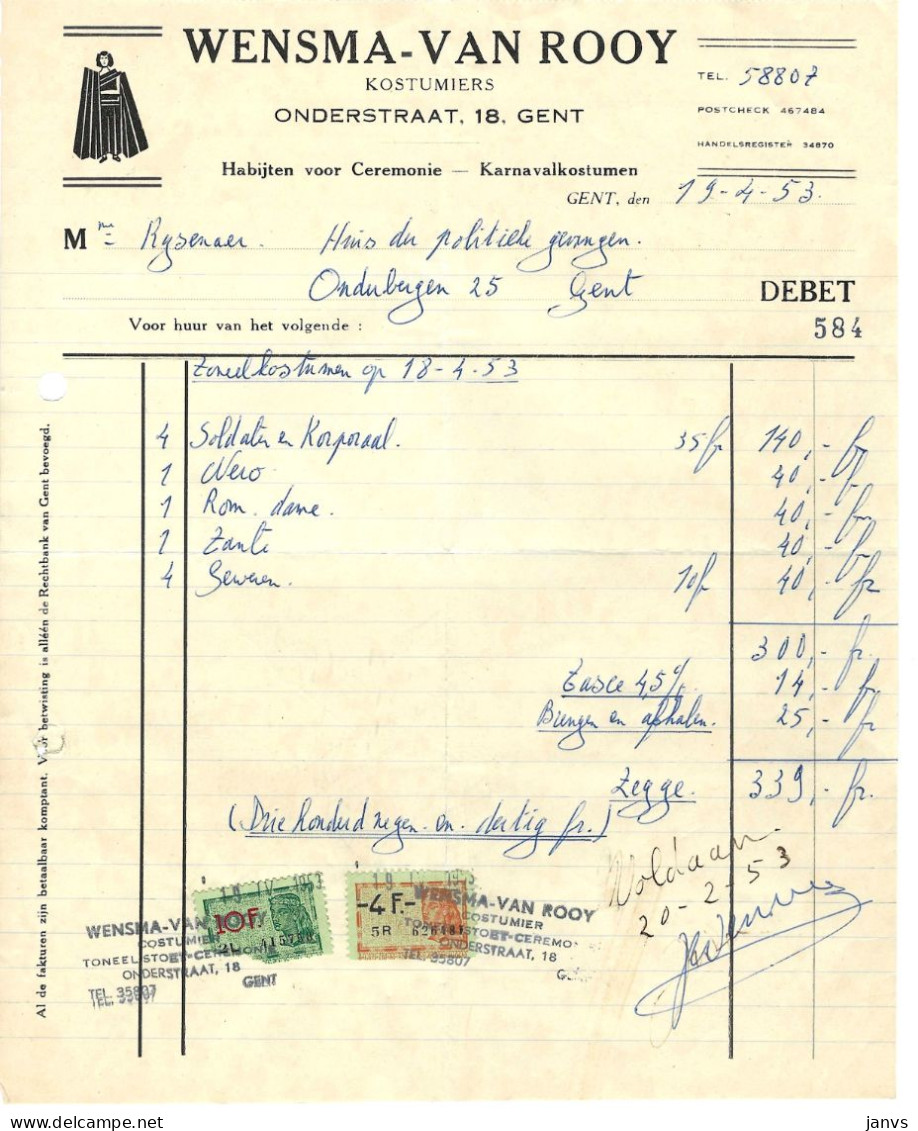 WENSMA-VAN ROOY
KOSTUMIERS
ONDERSTRAAT, 18, GENT
TEL. 58807
POSTCHECK 467484
HANDELSREGISTER 34870
Habijten voor Ceremonie — Karnavalkostumen
GENT, den 19-4-53.
M Rysenaer. Huis der politieke gevangen.
Onderbergen 25 Gent
DEBET
Voor huur van het volgende :
584
Toneelkostumen op 18-4-53
4 Soldaten en Korporaal. 35 fr 140,- fr
1 Nero 40,- fr
1 Rom. dame. 40,- fr
1 Zante 40,- fr
4 Geweren. 10 fr 40,- fr
300,- fr.
Taxe 4,5% 14,- fr
Brengen en afhalen. 25,- fr
Zegge. 339,- fr.
(Drie honderd negen en dertig fr.)
Voldaan.
20-2-53
Al de fakturen zijn betaalbaar komptant. Voor betwisting is alléén de Rechtbank van Gent bevoegd.
19 IV 1953
10F.
2L
-4 F.-
5R
WENSMA-VAN
COSTUMIER
TONEEL-STOET-CEREMONIE
ONDERSTRAAT, 18
TEL. 35807
GENT
WENSMA-VAN ROOY
COSTUMIER
STOET-CEREMO
ONDERSTRAAT, 18
TEL. 35807
janvs